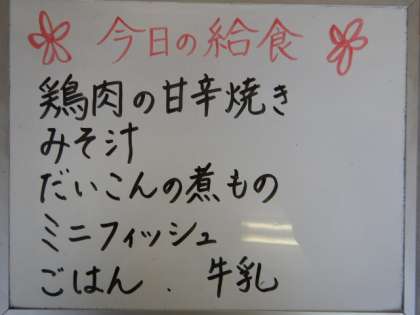 今日の給食
鶏肉の甘辛焼き
みそ汁
だいこんの煮もの
ミニフィッシュ
ごはん . 牛乳